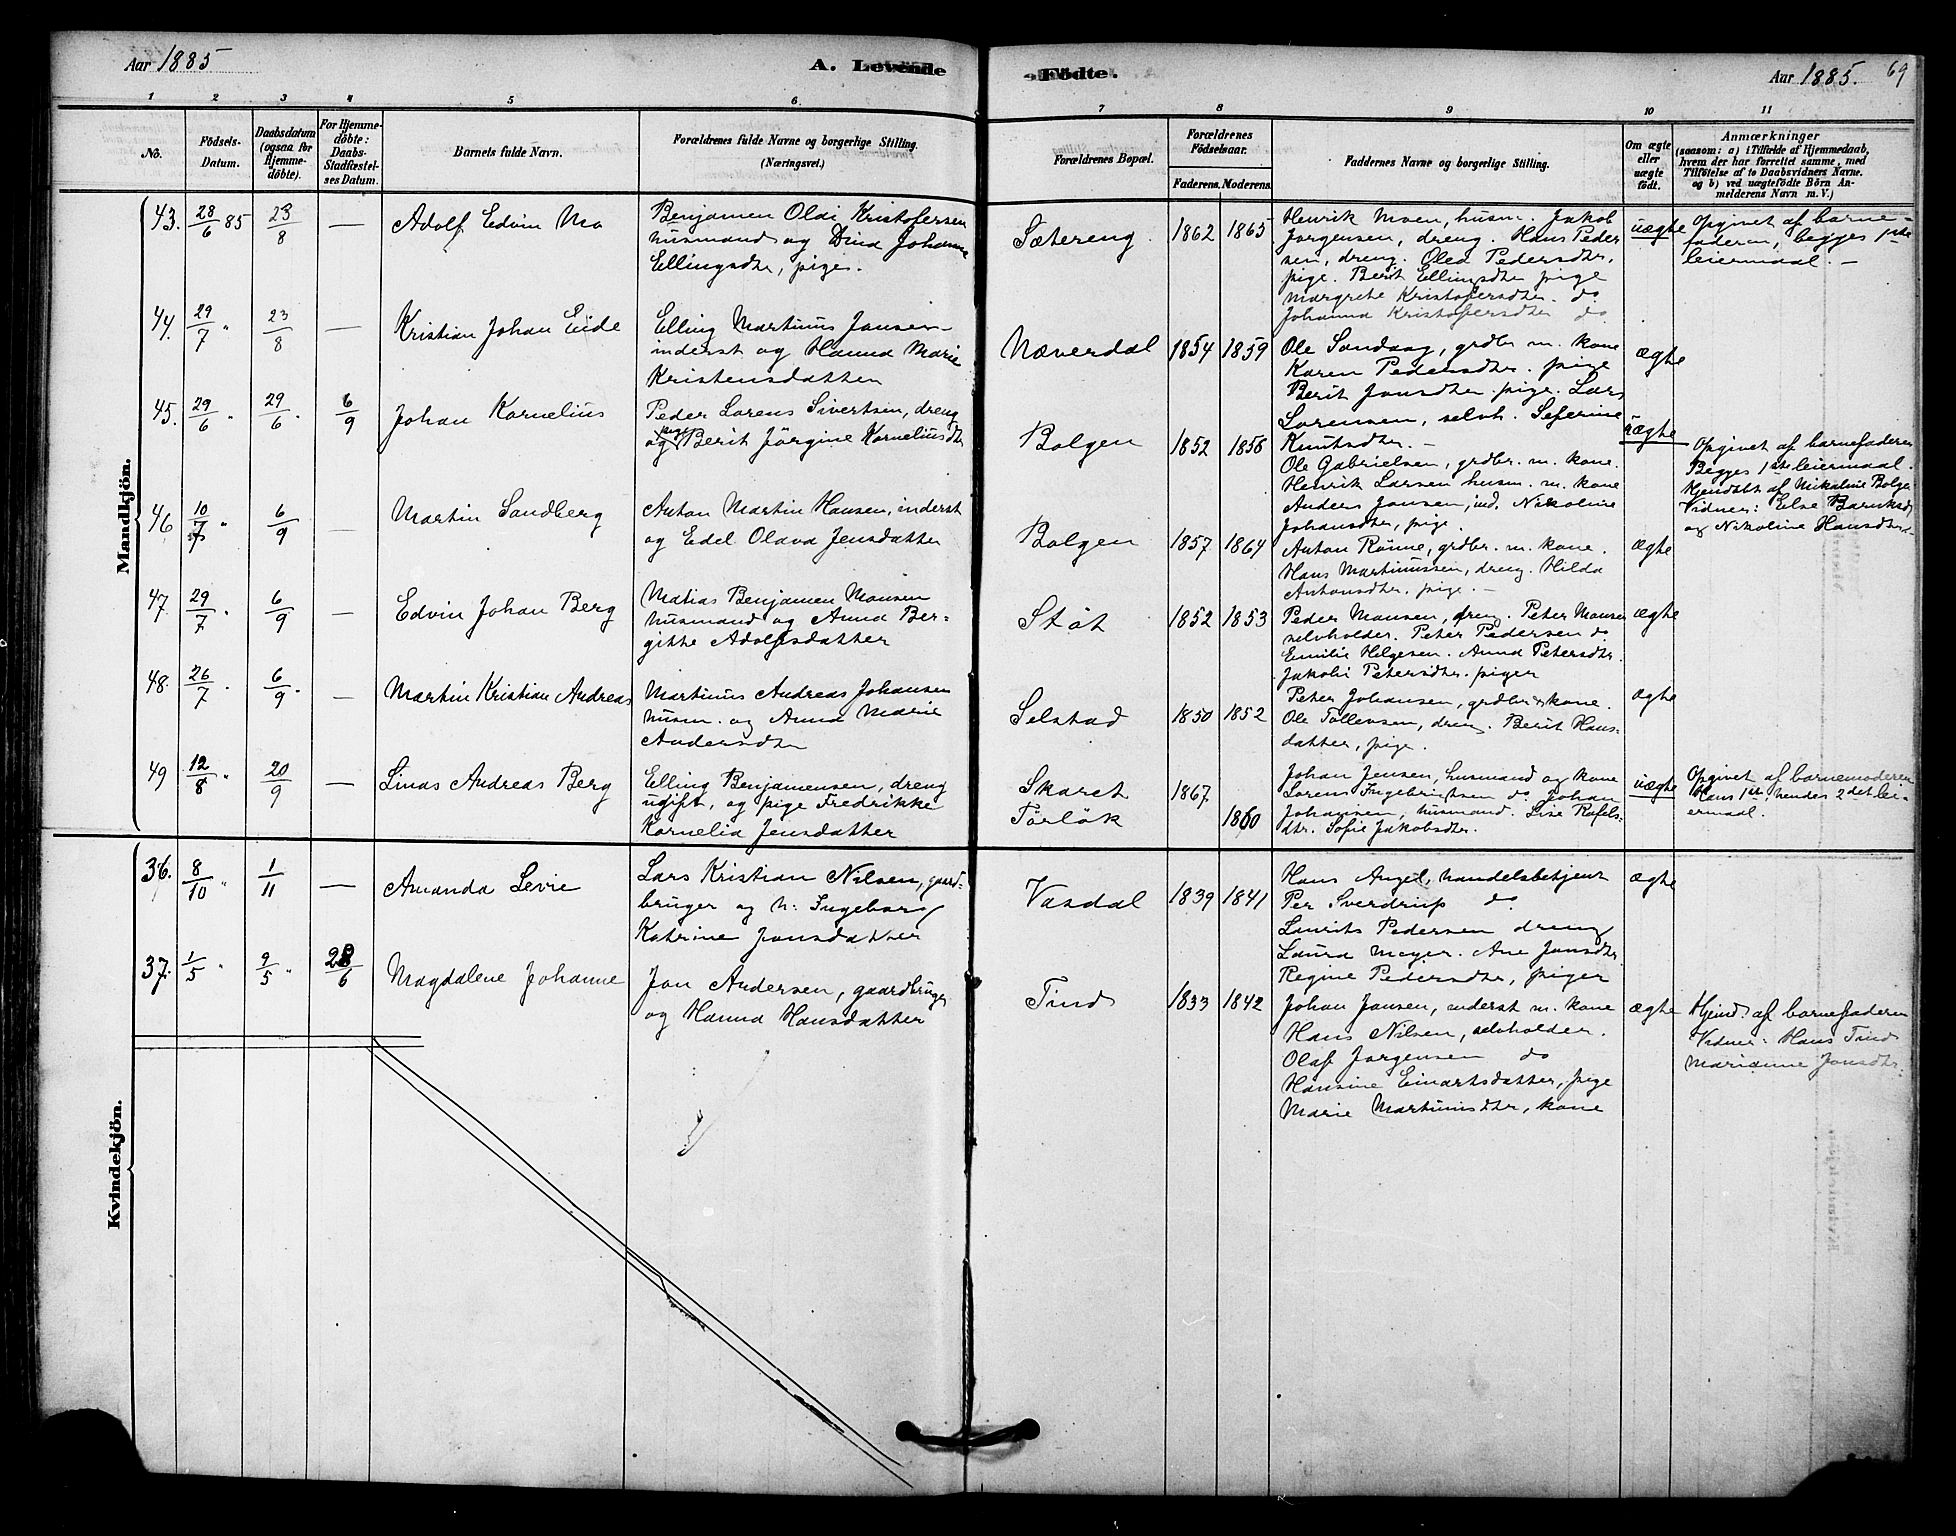 Aar 1885
A. Levende
Födte.
Aar 1885.
69
1 2 3 4 5 6. 7 8 9 10 11
No.
Födsels-
Datum.
Daabsdatum
(ogsaa for
Hjemme-
döbte).
For Hjemme-
döbte:
Daabs-
Stadfæstel-
ses Datum.
Barnets fulde Navn.
Forældrenes fulde Navne og borgerlige Stilling.
(Næringsvei.)
Forældrenes Bopæl.
Forældrenes
Födselsaar.
Faderens. Moderens.
Faddernes Navne og borgerlige Stilling.
Om ægte
eller
uægte
födt.
Anmærkninger
(saasom: a) i Tilfælde af Hjemmedaab,
hvem der har forrettet samme, med
Tilföielse af to Daabsvidners Navne.
og b) ved uægtefödte Börn An-
melderens Navn m. V.)
Mandkjön.
43. 28/6 85 23/8 — Adolf Edvin Mo
Benjamen Oldi Kristofersen
husmand og Dina Johanne
Ellingsdtr, pige.
Sætereng. 1862 1865
Henrik Moen, husm. Jakob
Jørgensen, dreng. Hans Peder
sen, dreng. Olea Pedersdtr,
pige. Berit Ellingsdtr pige
Margrete Kristofersdtr. do
Johanna Kristofersdtr do
uægte
Opgivet af barne-
faderen, begges 1ste
leiermaal. —
44. 29/7 " 23/8 — Kristian Johan Eide
Elling Martinus Jansen
inderst og Hanna Marie
Kristensdatter
Næverdal 1854 1859
Ole Sandaag, grdbr m. kone
Karen Pedersdtr. pige
Berit Jonsdtr. pige. Lars
Lorensen, selvh. Seferine
Knutsdtr. —
ægte
45. 29/6 " 29/6 " 6/9 Johan Kornelius
Peder Lorens Sivertsen, dreng
og pige Berit Jørgine Korneliusdtr
Bolgen 1852 1858
Ole Gabrielsen, grdbr. m. kone.
Henrik Larsen husm. m. kone
Anders Jansen, ind. Nikoline
Johansdtr, pige.
uægte
Opgivet af barnefaderen
Begges 1ste leiermaal.
Hjemdøbt af Nikoline Bolgen
Vidner: Else
og Nikoline Hansdtr
46 10/7 " 6/9 — Martin Sandberg
Anton Martin Hansen, inderst
og Edel Olava Jensdatter
Bolgen 1857 1864
Anton Rønne, grdbr. m. kone.
Hans Martinussen, dreng. Hilda
Antonsdtr. pige. —
ægte
47. 29/7 " 6/9 — Edvin Johan Berg
Matias Benjamen Monsen
husmand og Anna Ber=
gitte Adolfsdatter
Støt 1852 1853
Peder Monsen, dreng. Peter Monsen
selvholder. Peter Pedersen do
Emilie Helgesen. Anna Petersdtr.
Jakobi Petersdtr. piger
ægte
48. 26/7 . 6/9 . — Martin Kristian Andreas
Martinus Andreas Johansen
husm. og Anna Marie
Andersdtr
Selstad 1850 1852
Peter Johansen, grdbr & kone.
Ole Tollevsen, dreng. Berit Hans-
datter, pige.
ægte
49 12/8 " 20/9 — Linas Andreas Berg
Elling Benjamensen, dreng
ugift, og pige Fredrikke
Kornelia Jensdatter
Skaret 1867
Forløk 1860
Johan Jensen, husmand og kone
Lorens Ingebrigtsen do Johan
Johansen, husmand. Lise Rafels-
dtr. Sofie Jakobsdtr.
uægte
Opgivet af barnemoderen
Hans 1ste, hendes 2det lei-
ermaal.
Kvindekjön.
36. 8/10 " 1/11 — Amanda Levie
Lars Kristian Nilsen, gaard-
bruger og h: Ingeborg
Katrine Jonsdatter
Vasdal 1839 1841
Hans Angel, handelsbetjent
Per Sverdrup do
Laurits Pedersen dreng
Laura Meyer. Ane Jonsdtr
Regine Pedersdtr, piger
ægte
37. 1/5 " 9/5 " 28/6 Magdalene Johanne
Jon Andersen, gaardbruger
og Hanna Hansdatter
Tind 1833 1842
Johan Jansen, inderst m. kone
Hans Nilsen, selvholder.
Olaf Jørgensen do
Hansine Einartsdatter, pige
Marie Martinusdtr, kone
ægte
Hjemd. af barnefaderen
Vidner: Hans Tind
Marianne Jonsdtr.